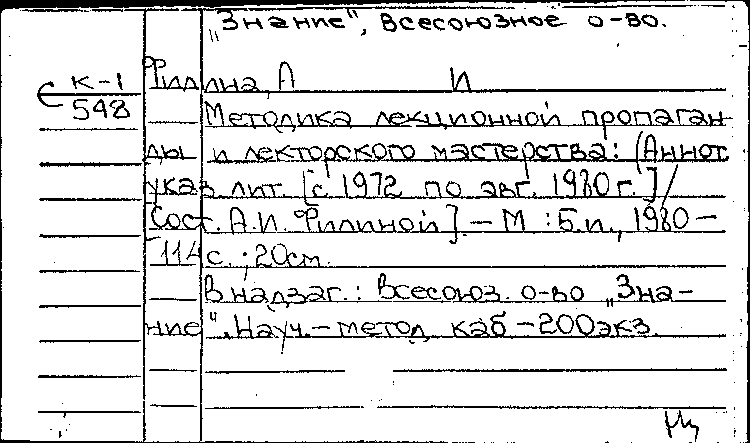 „Знание", Всесоюзное о-во.
К-1 Филина, А И
548 Методика лекционной пропаган
ды и лекторского мастерства: (Аннот.
указ. лит. [с 1972 по авг. 1980 г.]/
Сост. А.И. Филиной]. – М : Б.и., 1980 –
114 с. ; 20см.
В надзаг.: Всесоюз. о-во „Зна-
ние". Науч. – метод каб – 200 экз.